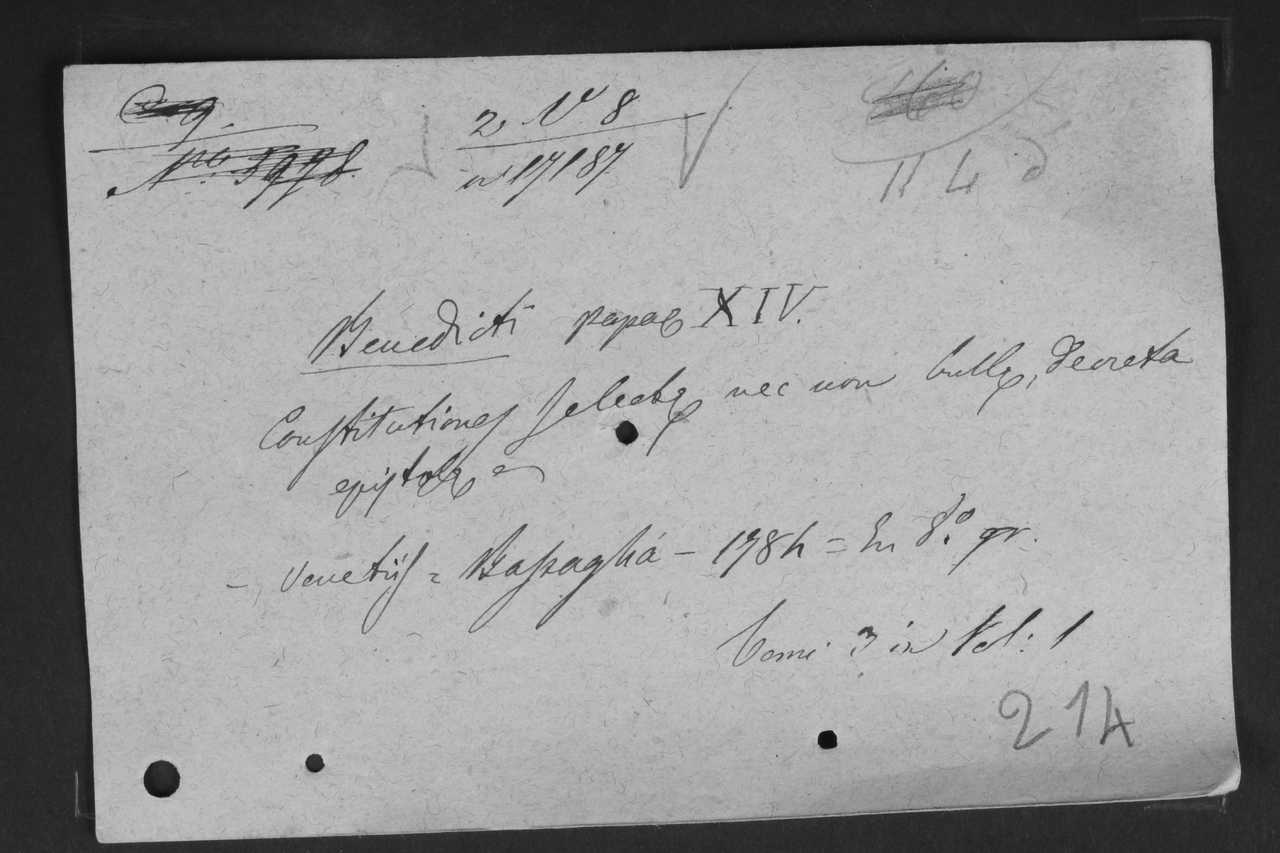 2 N 8
n 17187
11 4 d
Benedicti papae XIV.
Constitutiones selectę nec non bullę, decreta
epistolę =
- Venetijs = Bassagliá - 1784 = In 8.º gr.
Tomi 3 in Vol: 1
214